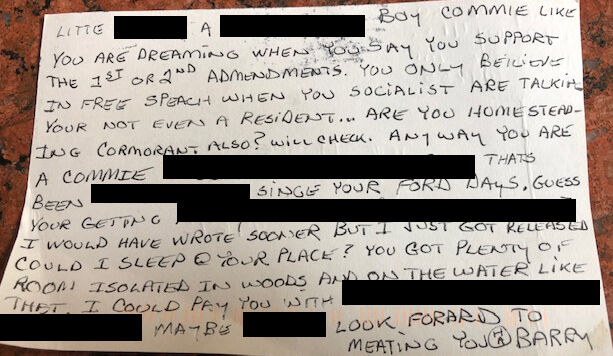 LITTE A BOY COMMIE LIKE
YOU ARE DREAMING WHEN YOU SAY YOU SUPPORT
THE 1ST OR 2ND ADMENDMENTS. YOU ONLY BEILIEVE
IN FREE SPEACH WHEN YOU SOCIALIST ARE TALKIN
YOUR NOT EVEN A RESIDENT... ARE YOU HOMESTEAD-
ING CORMORANT ALSO? WILL CHECK. ANYWAY YOU ARE
A COMMIE THATS
BEEN SINCE YOUR FORD DAYS. GUESS
YOUR GETTING
I WOULD HAVE WROTE SOONER BUT I JUST GOT RELEASED
COULD I SLEEP @ YOUR PLACE? YOU GOT PLENTY OF
ROOM ISOLATED IN WOODS AND ON THE WATER LIKE
THAT. I COULD PAY YOU WITH
MAYBE LOOK FORARD TO
MEATING YOU BARRY